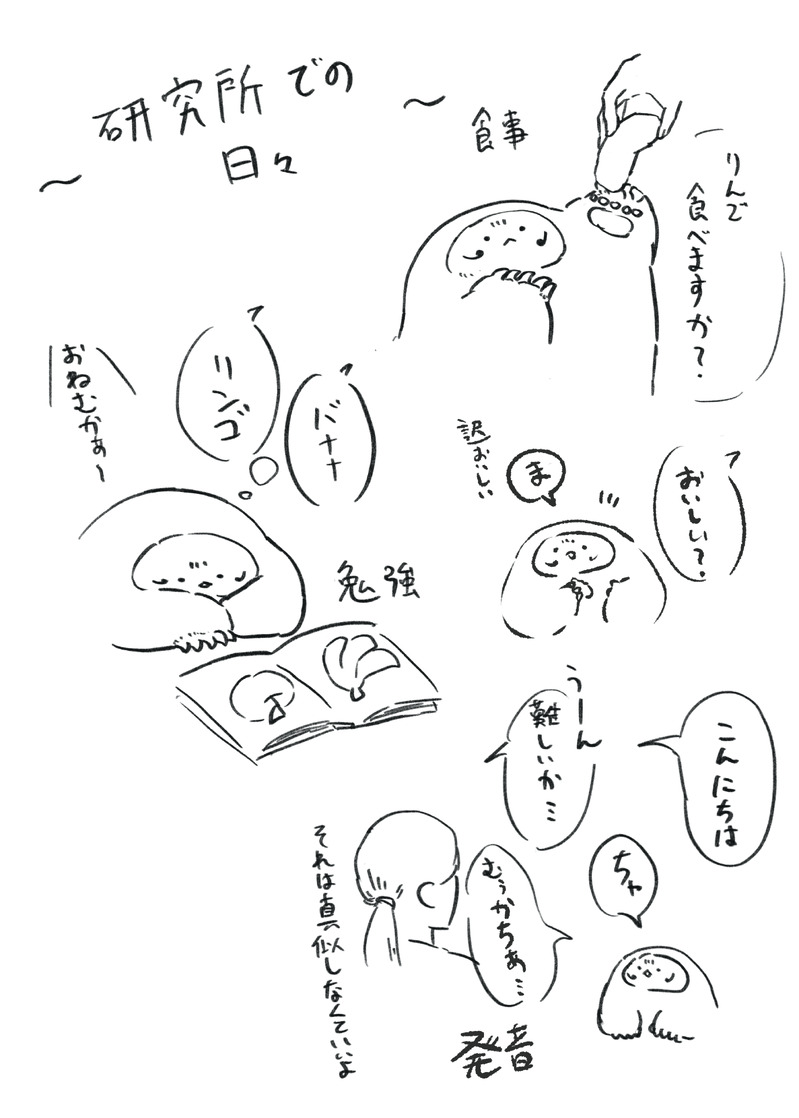 ～研究所での
日々～
食事
りんご
食べますか？
おいしい？
ま
訳おいしい
バナナ
リンゴ
おねむかぁ～
勉強
こんにちは
ちゃ
うーん
難しいか…
むぅかちぁ…
それは真似しなくていいよ
発音